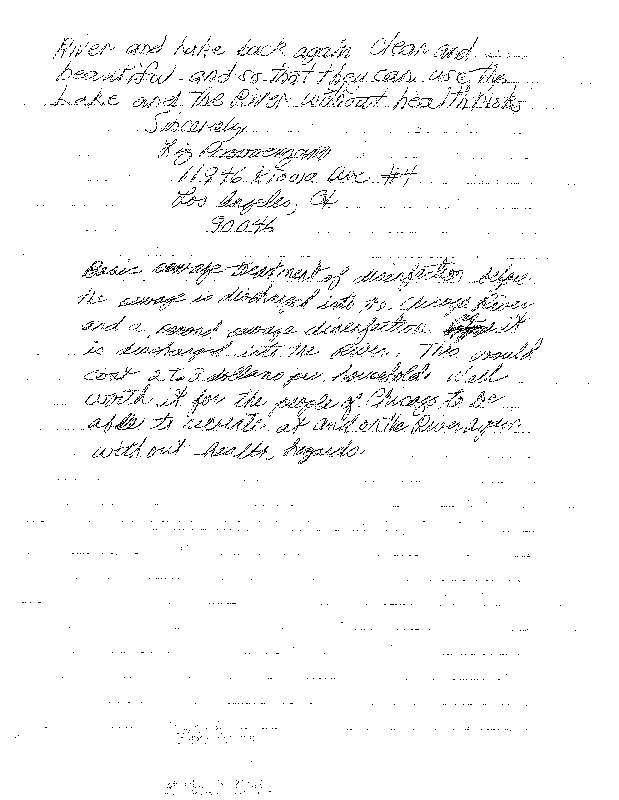 River and Lake back again clean and
beautiful - and so that they can use the
Lake and the River without health risks
Sincerely
Liz
11946 Kiowa Ave #4
Los Angeles, CA
90046
Basic sewage treatment of disinfection before
the sewage is discharged into the Chicago River
and a second sewage disinfection it
is discharged into the River. This would
cost 2 to 3 dollars per household. Well
worth it for the people of Chicago to be
able to recreate at and on the River again
without health hazards